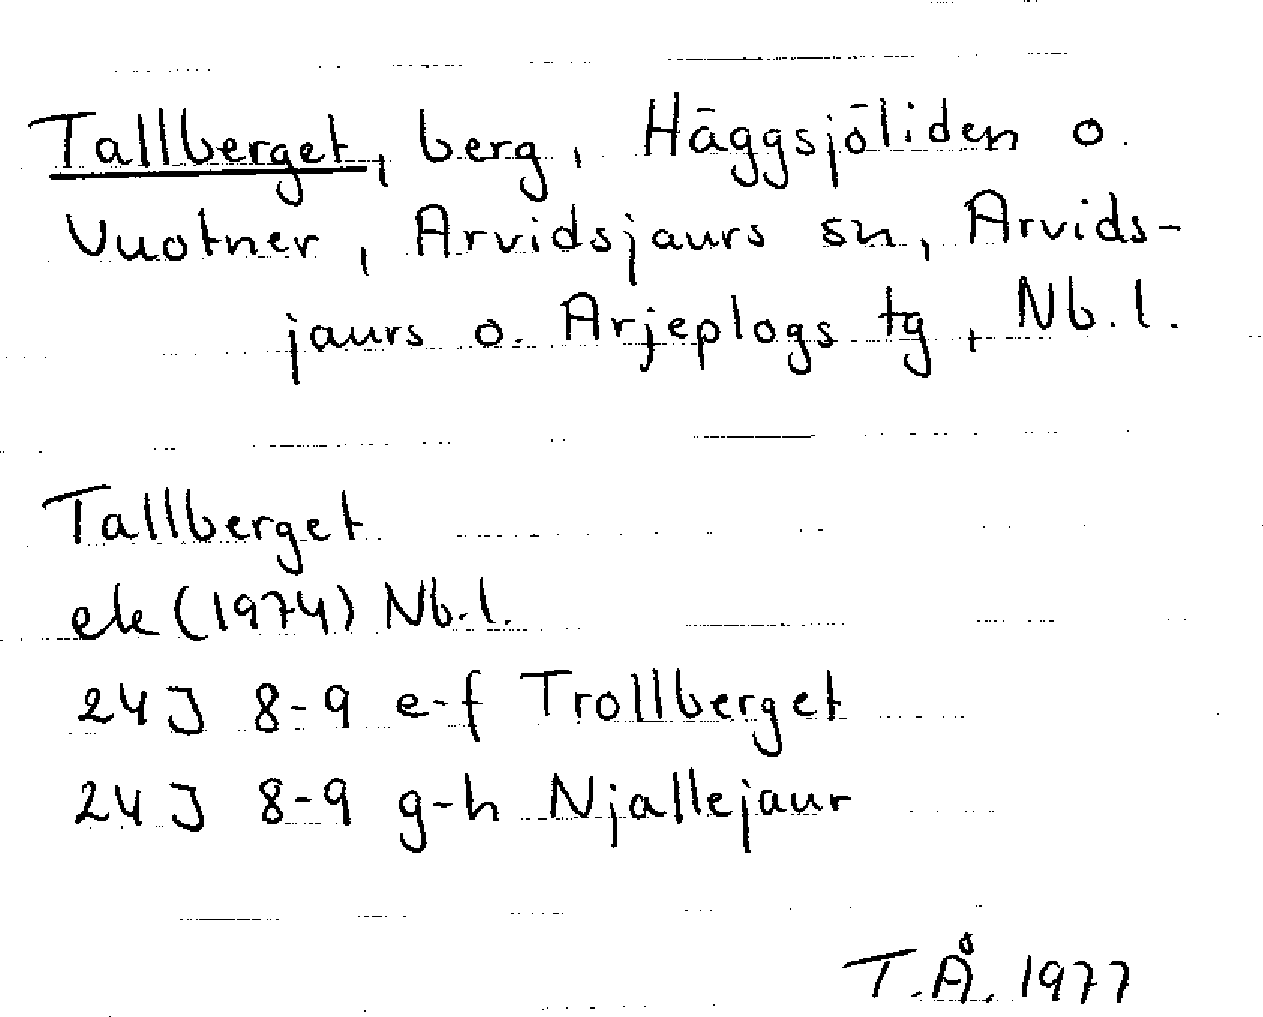 Tallberget, berg, Häggsjöliden o.
Vuotner, Arvidsjaurs sn, Arvids-
jaurs o. Arjeplogs tg, Nb.l.
Tallberget
ek (1974) Nb.l.
24J 8-9 e-f Trollberget
24J 8-9 g-h Njallejaur
T.Å. 1977